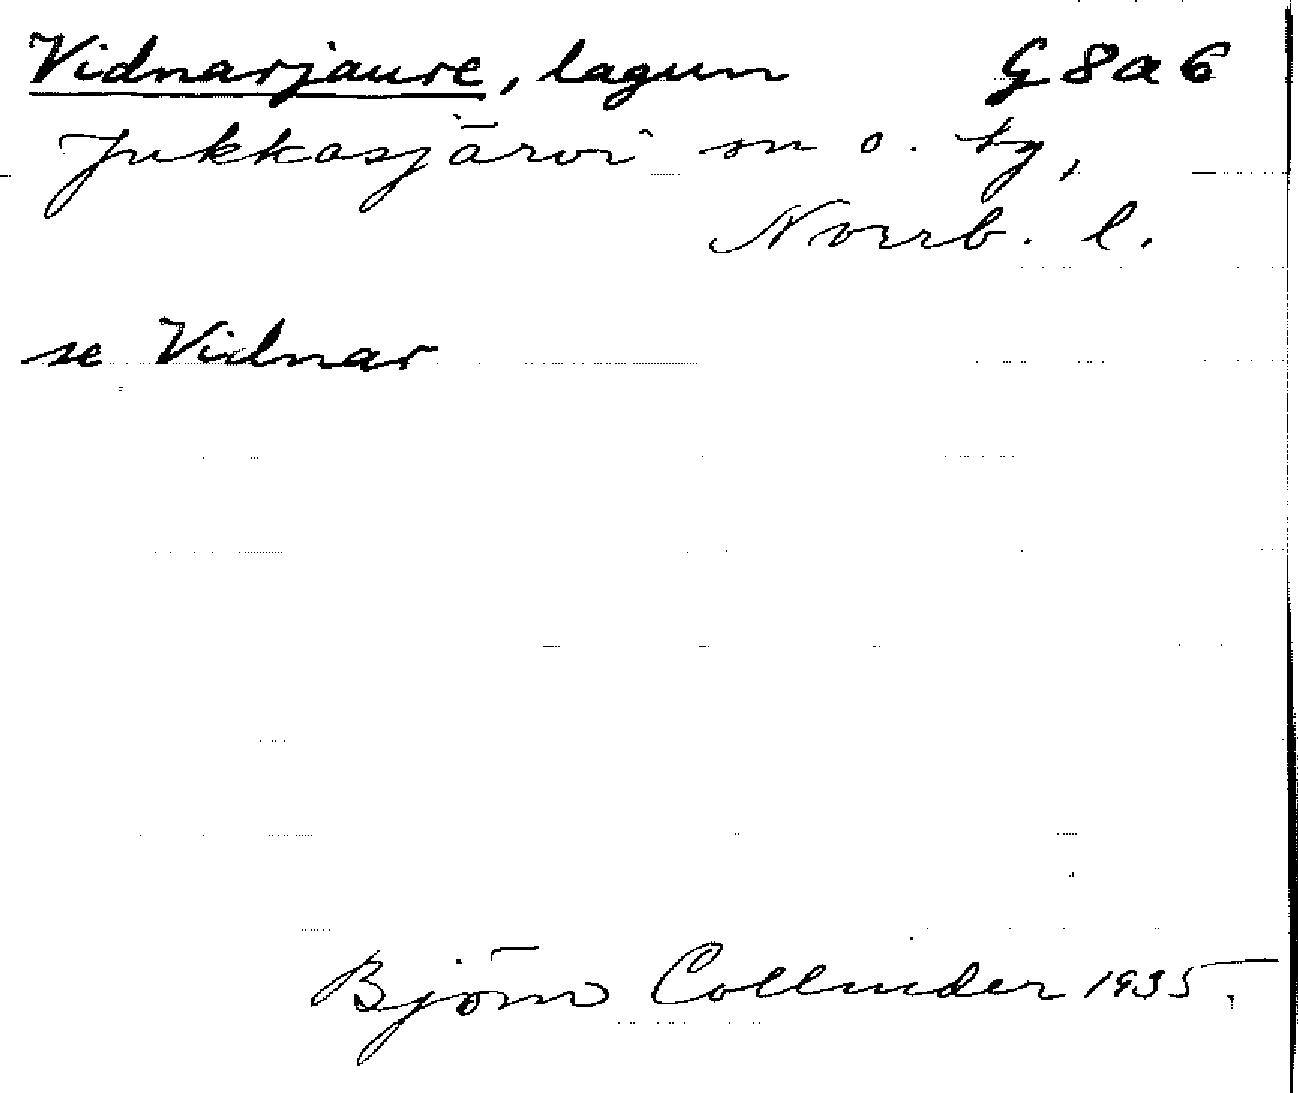 Vidnarjaure, lagun G 8 a 6
Jukkasjärvi sn o. tg,
Norrb. l.
se Vidnar
Björn Collinder 1935.